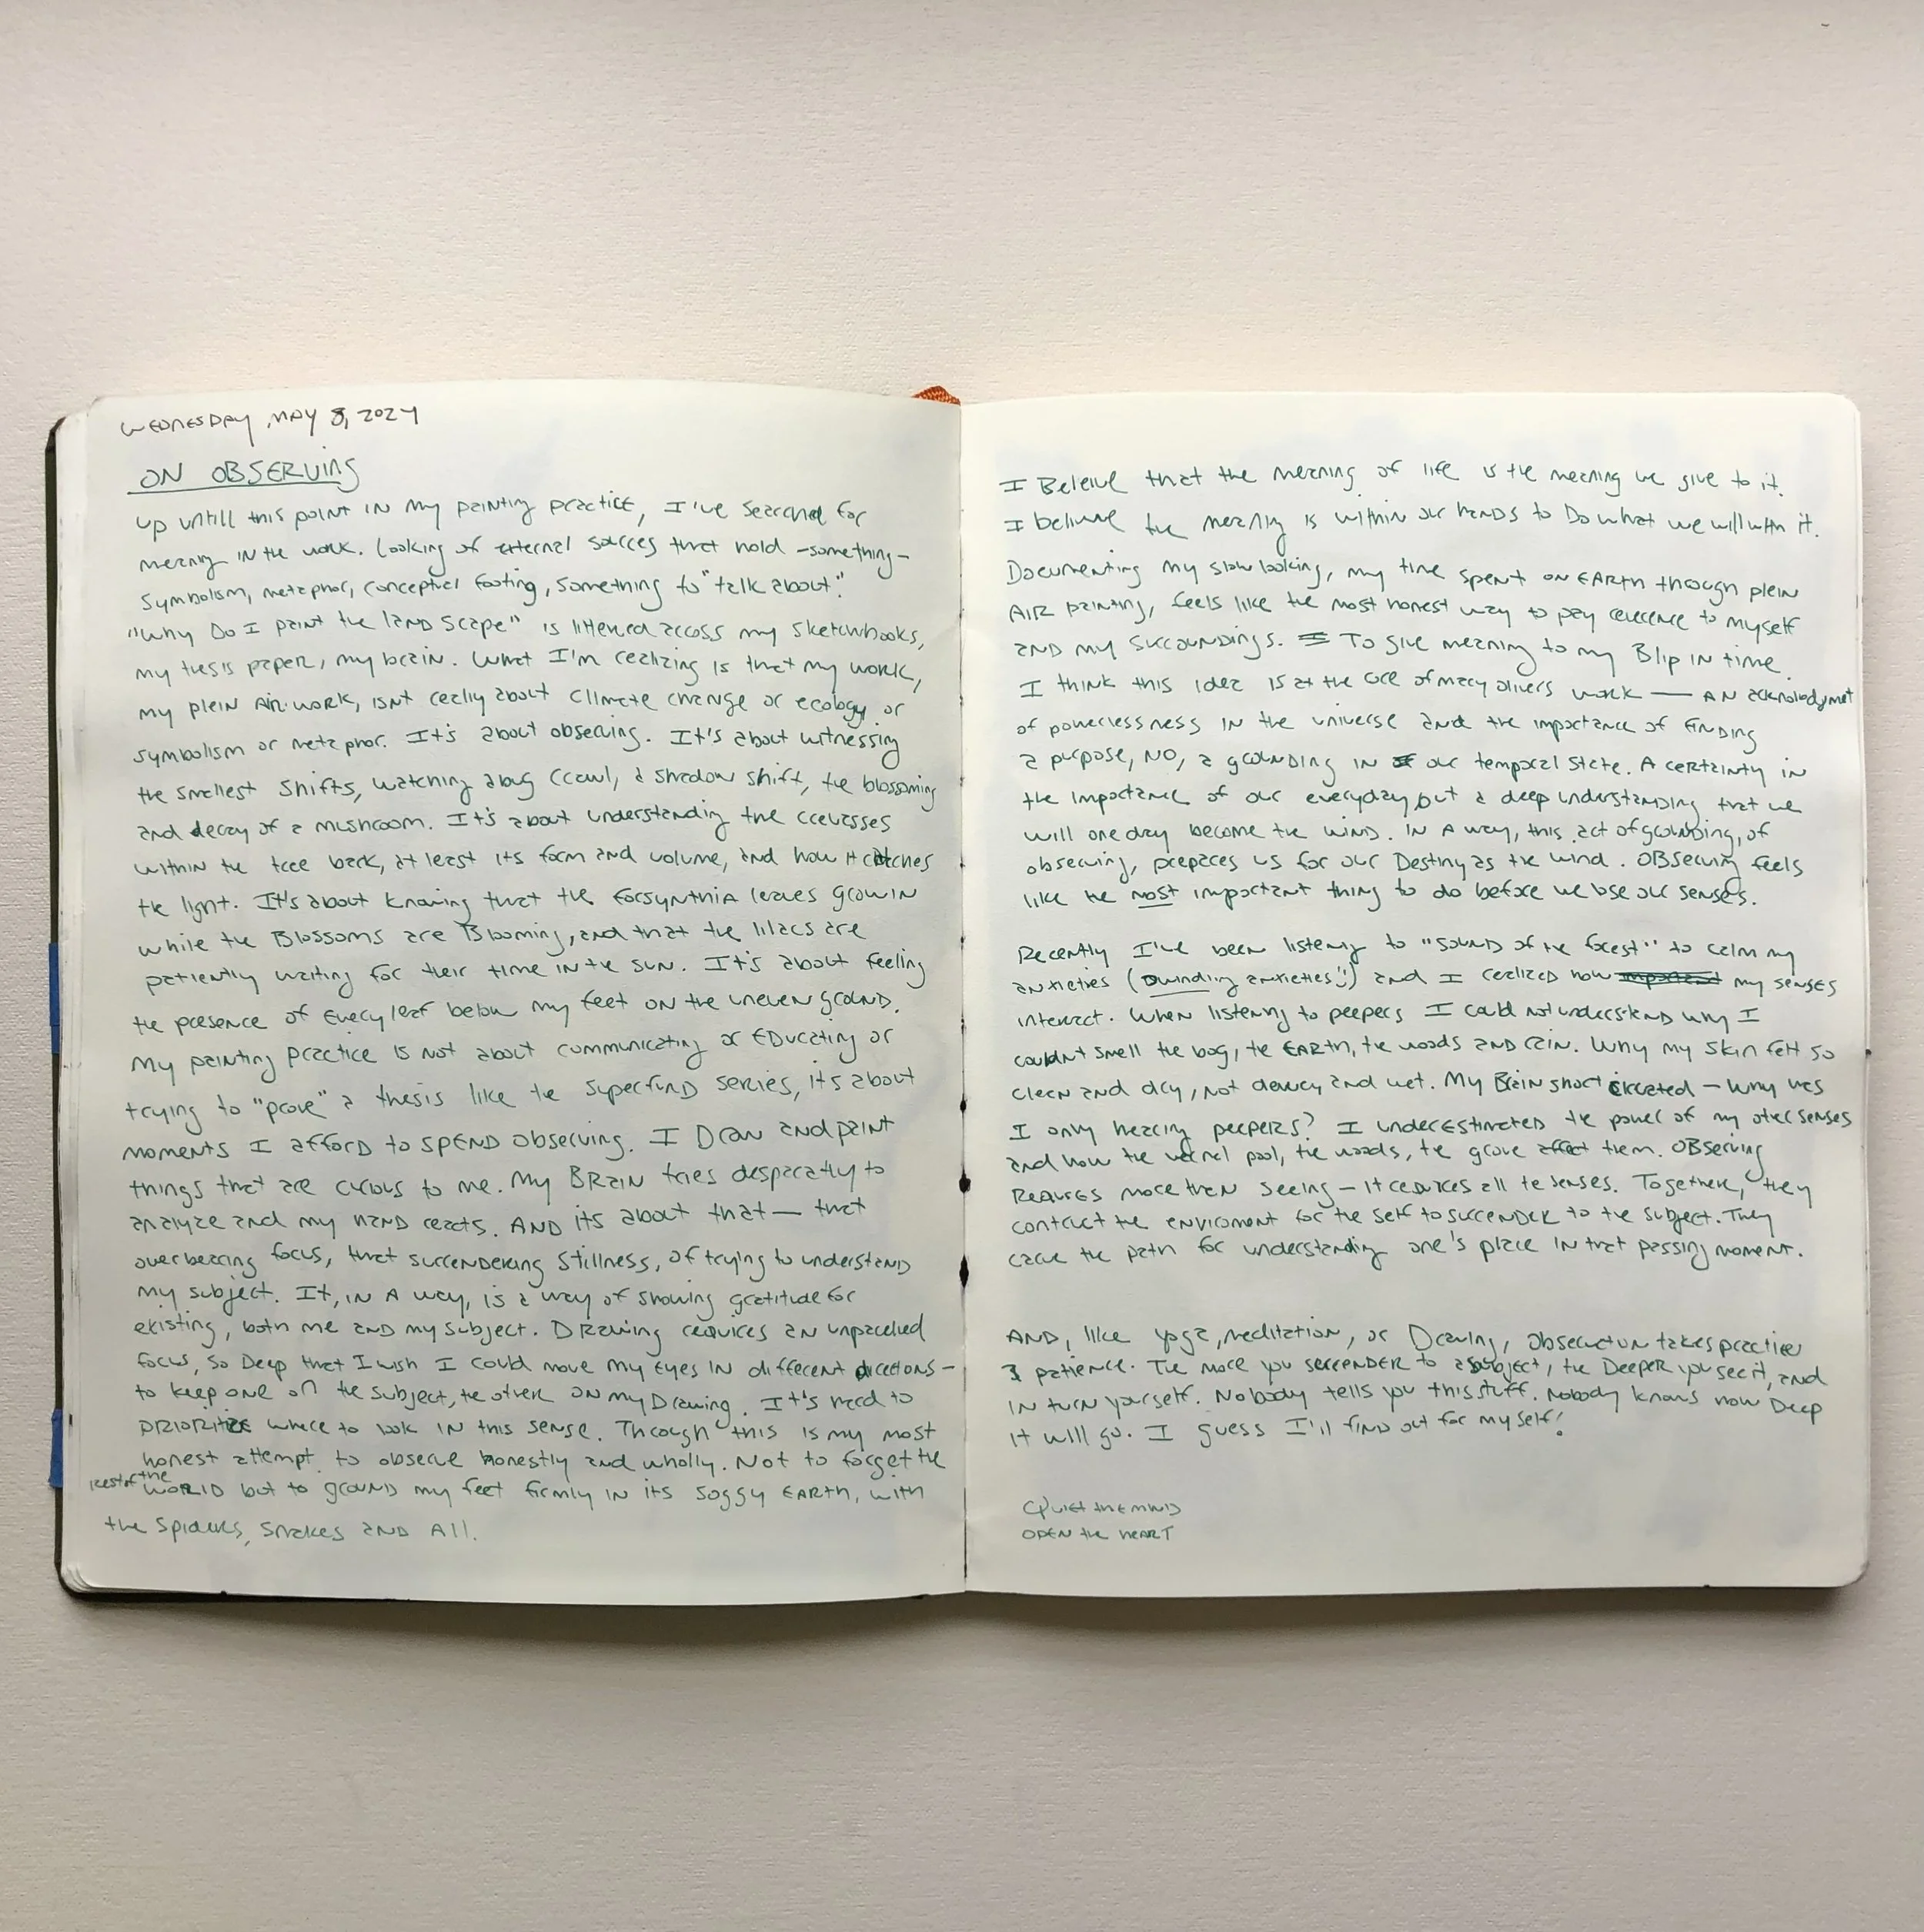 WEDNESDAY, MAY 8, 2024
ON OBSERVING
up untill this point IN my painting practice, I've searched for
meaning IN the work. Looking of external sources that hold -something-
symbolism, metaphor, conceptual footing, something to "talk about."
"Why Do I paint the land scape" is littered across my sketchbooks,
my thesis paper, my brain. What I'm realizing is that my work,
my plein Air work, isnt really about climate change or ecology or
symbolism or metaphor. It's about observing. It's about witnessing
the smallest shifts, watching a bug crawl, a shadow shift, the blossoming
and decay of a mushroom. It's about understanding the crevasses
within the tree bark, at least its form and volume, and how it catches
the light. It's about knowing that the forsynthia leaves grow IN
while the Blossoms are Blooming, and that the lilacs are
patiently waiting for their time IN the sun. It's about feeling
the presence of every leaf below my feet ON the uneven ground.
My painting practice is not about communicating or Educating or
trying to "prove" a thesis like the superfund series, it's about
moments I afford to SPEND observing. I Draw and paint
things that are curious to me. My BRAIN tries desparatly to
analyze and my hand reacts. AND its about that — that
overbearing focus, that surrendering stillness, of trying to understand
my subject. It, IN A way, is a way of showing gratitude for
existing, both me and my subject. Drawing requires an unparalled
focus, so Deep that I wish I could move my Eyes IN different directions -
to keep one on the subject, the other on my Drawing. It's hard to
prioritize where to look IN this sense. Through this is my most
honest attempt to observe honestly and wholly. Not to forget the
rest of the WORLD but to ground my feet firmly IN its soggy EARTH, with
the spiders, snakes and All.
I Beleive that the meaning of life is the meaning we give to it.
I believe the meaning is within our hands to Do what we will with it.
Documenting my slow looking, my time spent on EARTH through plein
AIR painting, feels like the most honest way to pay reverence to myself
and my surroundings. To give meaning to my Blip IN time.
I think this idea is at the core of mary olivers work — AN acknolodgmet
of powerlessness IN the universe and the importance of FINDING
a purpose, NO, a grounding IN our temporal state. A certainty in
the importance of our everyday but a deep understanding that we
will one day become the wind. IN A way, this act of grounding, of
observing, prepares us for our Destiny as the wind. Observing feels
like the most important thing to do before we lose our senses.
Recently I've been listening to "sound of the forest" to calm my
anxieties (dwindling anxieties!) and I realized how important my senses
interact. When listening to peepers I could not understand why I
couldnt smell the bog, the EARTH, the woods and rain. Why my skin felt so
clean and dry, not dewey and wet. My Brain short circuted - why was
I only hearing peepers? I underestimated the power of my other senses
and how the vernal pool, the woods, the grove affect them. Observing
requires more then seeing - it requires all the senses. Together, they
contruct the enviroment for the self to surrender to the subject. They
carve the path for understanding one's place IN that passing moment.
AND, like yoga, meditation, or Drawing, observation takes practice
& patience. The more you surrender to a subject, the Deeper you see it, and
IN turn yourself. Nobody tells you this stuff. Nobody knows how Deep
it will go. I guess I'll find out for myself!
Quiet the mind
OPEN the HEART